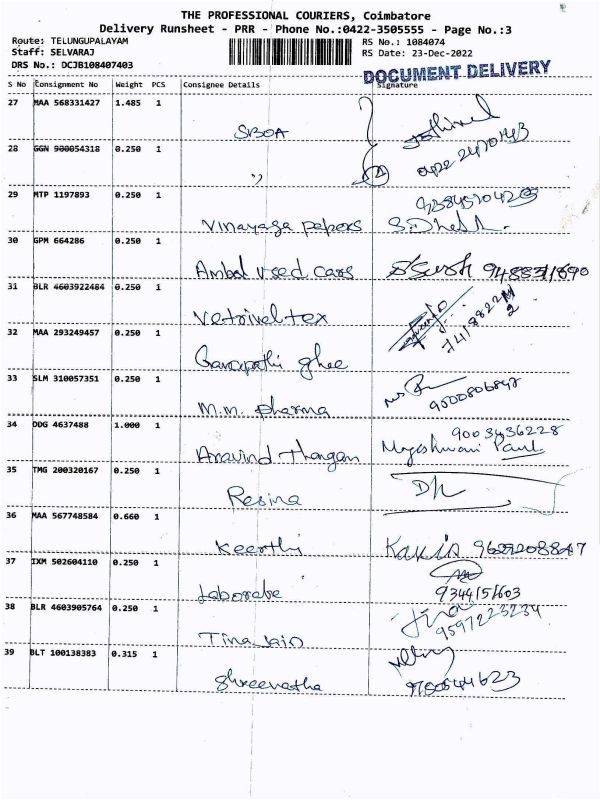 THE PROFESSIONAL COURIERS, Coimbatore
Delivery Runsheet - PRR - Phone No.:0422-3505555 - Page No.:3
Route: TELUNGUPALAYAM RS No.: 1084074
Staff: SELVARAJ RS Date: 23-Dec-2022
DRS No.: DCJB108407403
DOCUMENT DELIVERY
S No Consignment No Weight PCS Consignee Details Signature
27 MAA 568331427 1.485 1
SBOA
0422 2470143
28 GGN 900054318 0.250 1
,,
29 MTP 1197893 0.250 1
Vinayaga papers
30 GPM 664286 0.250 1
Ambal used cars
31 BLR 4603922484 0.250 1
Vetrivel tex
32 MAA 293249457 0.250 1
Ganapathi ghee
33 SLM 310057351 0.250 1
M.M. pharma
34 DDG 4637488 1.000 1
9003436228
Aravind Thangam
35 TMG 200320167 0.250 1
Resina
36 MAA 567748584 0.660 1
Keerthi
37 IXM 502604110 0.250 1
9344151603
Laborate
38 BLR 4603905764 0.250 1
9597223234
Tina Jain
39 BLT 100138383 0.315 1
Shreenatha 9700544623